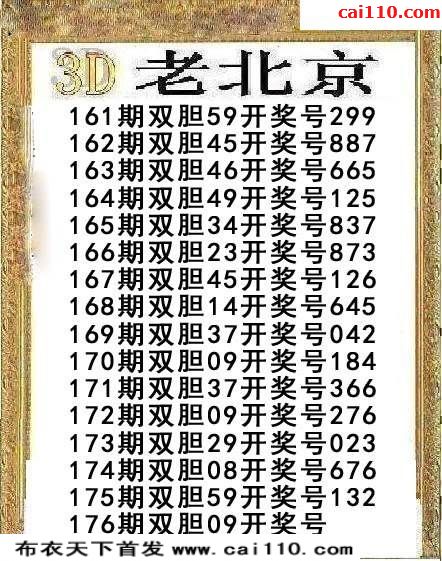 cai110.com
3D 老北京
161期双胆59开奖号299
162期双胆45开奖号887
163期双胆46开奖号665
164期双胆49开奖号125
165期双胆34开奖号837
166期双胆23开奖号873
167期双胆45开奖号126
168期双胆14开奖号645
169期双胆37开奖号042
170期双胆09开奖号184
171期双胆37开奖号366
172期双胆09开奖号276
173期双胆29开奖号023
174期双胆08开奖号676
175期双胆59开奖号132
176期双胆09开奖号
布衣天下首发 www.cai110.com